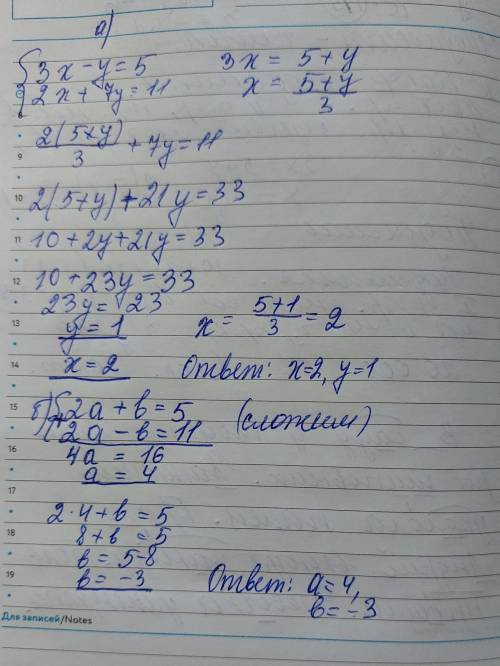 а)
3x − y = 5     3x = 5 + y
2x + 7y = 11     x = (5+y)/3
8
2(5+y)/3 + 7y = 11
9
10 2(5+y) + 21y = 33
11 10 + 2y + 21y = 33
12 10 + 23y = 33
23y = 23
13 y = 1     x = (5+1)/3 = 2
14 x = 2     Ответ: x=2, y=1
15 б) 2a + b = 5     (сложим)
2a − b = 11
16 4a = 16
a = 4
17
2·4 + b = 5
18 8 + b = 5
b = 5−8
19 b = −3     Ответ: a=4,
b = −3
Для записей/Notes